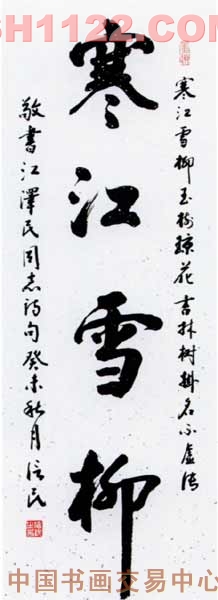 SH1122.COM
寒江雪柳
寒江雪柳玉树琼花吉林树挂名不虚传
敬书江泽民同志诗句癸未秋月信民
中国书画交易中心